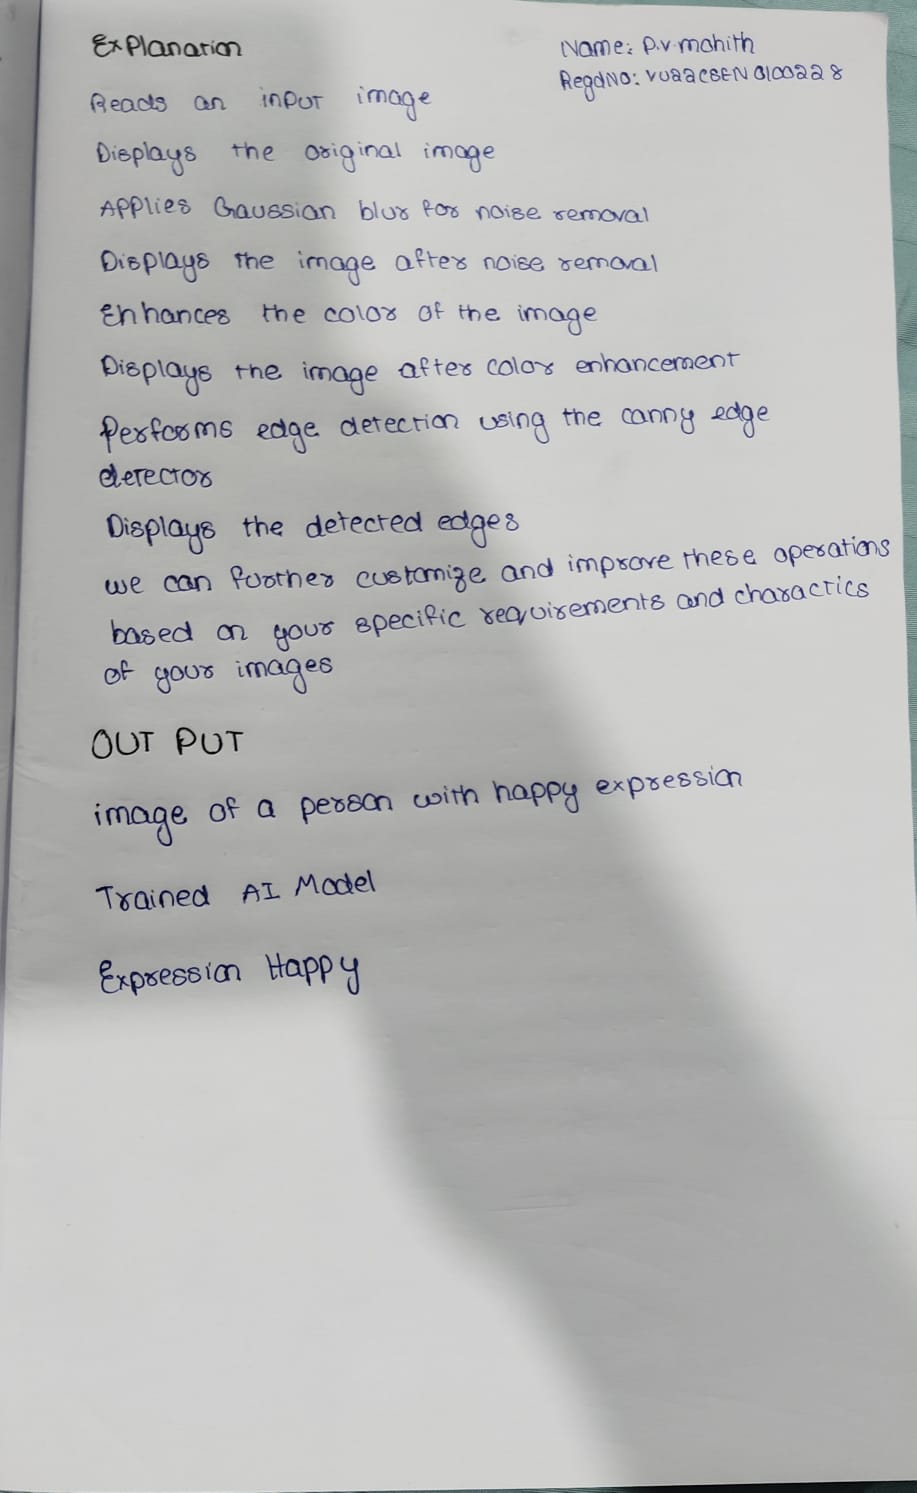 Explanation
Name: P.v.mohith
RegdNo: VU22CSEN0100228
Reads an input image
Displays the original image
Applies Gaussian blur for noise removal
Displays the image after noise removal
Enhances the color of the image
Displays the image after color enhancement
Performs edge detection using the canny edge
detector
Displays the detected edges
we can further customize and improve these operations
based on your specific requirements and charactics
of your images
OUT PUT
image of a person with happy expression
Trained AI Model
Expression Happy